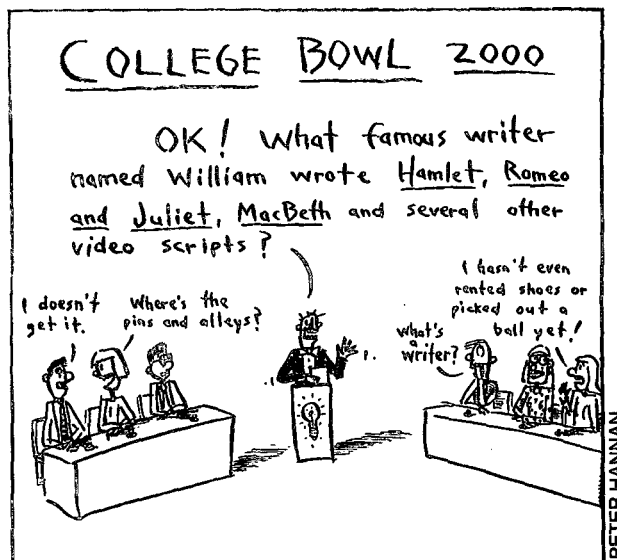 COLLEGE BOWL 2000
OK! What famous writer
named William wrote Hamlet, Romeo
and Juliet, MacBeth and several other
video scripts?
I doesn't
get it.
Where's the
pins and alleys?
What's
a
writer?
I hasn't even
rented shoes or
picked out a
ball yet!
PETER HANNAN